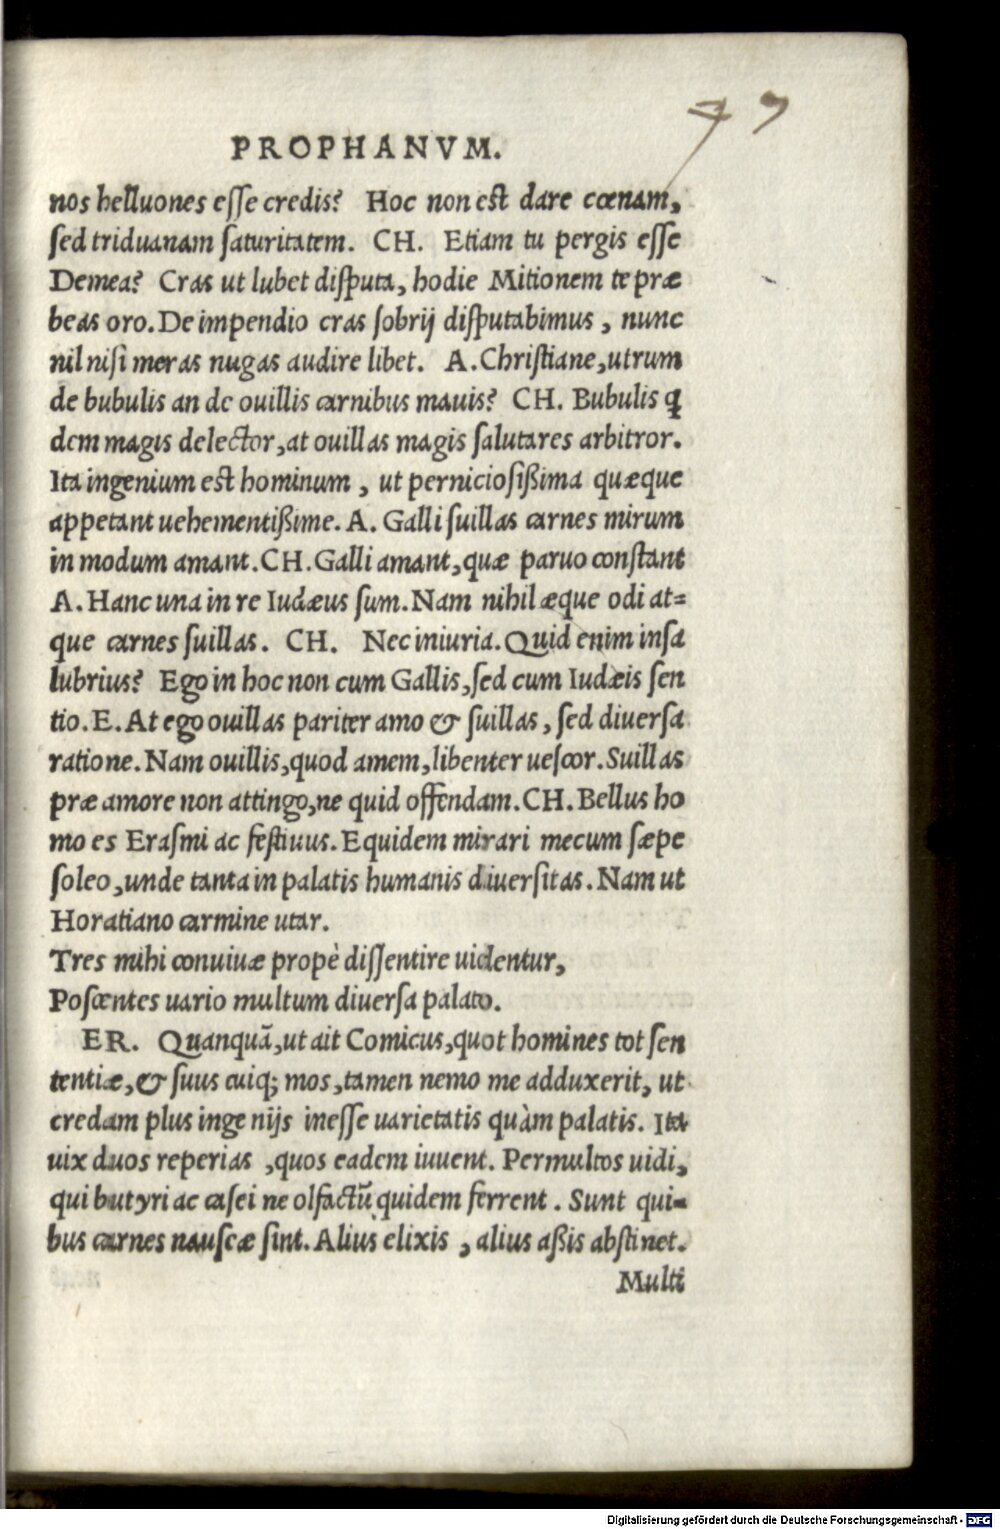 47
PROPHANVM.
nos helluones esse credis? Hoc non est dare cœnam,
sed triduanam saturitatem. CH. Etiam tu pergis esse
Demea? Cras ut lubet disputa, hodie Mitionem te præ
beas oro. De impendio cras sobrij disputabimus, nunc
nil nisi meras nugas audire libet. A. Christiane, utrum
de bubulis an de ouillis carnibus mauis? CH. Bubulis ꝗ
dem magis delector, at ouillas magis salutares arbitror.
Ita ingenium est hominum, ut perniciosißima quæque
appetant uehementißime. A. Galli suillas carnes mirum
in modum amant. CH. Galli amant, quæ paruo constant
A. Hanc una in re Iudæus sum. Nam nihil æque odi at=
que carnes suillas. CH. Nec iniuria. Quid enim insa
lubrius? Ego in hoc non cum Gallis, sed cum Iudæis sen
tio. E. At ego ouillas pariter amo & suillas, sed diuersa
ratione. Nam ouillis, quod amem, libenter uescor. Suillas
præ amore non attingo, ne quid offendam. CH. Bellus ho
mo es Erasmi ac festiuus. Equidem mirari mecum sæpe
soleo, unde tanta in palatis humanis diuersitas. Nam ut
Horatiano carmine utar.
Tres mihi conuiuæ propè dissentire uidentur,
Poscentes uario multum diuersa palato.
ER. Quanquã, ut ait Comicus, quot homines tot sen
tentiæ, & suus cuiq; mos, tamen nemo me adduxerit, ut
credam plus ingenijs inesse uarietatis quàm palatis. Ita
uix duos reperias, quos eadem iuuent. Permultos uidi,
qui butyri ac casei ne olfactũ quidem ferrent. Sunt qui=
bus carnes nauseæ sint. Alius elixis, alius aßis abstinet.
Multi
Digitalisierung gefördert durch die Deutsche Forschungsgemeinschaft - DFG